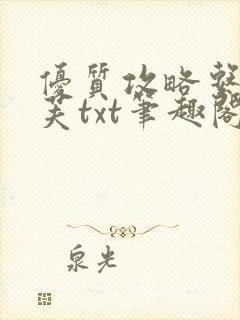 優質攻略
txt筆趣閣
泉光